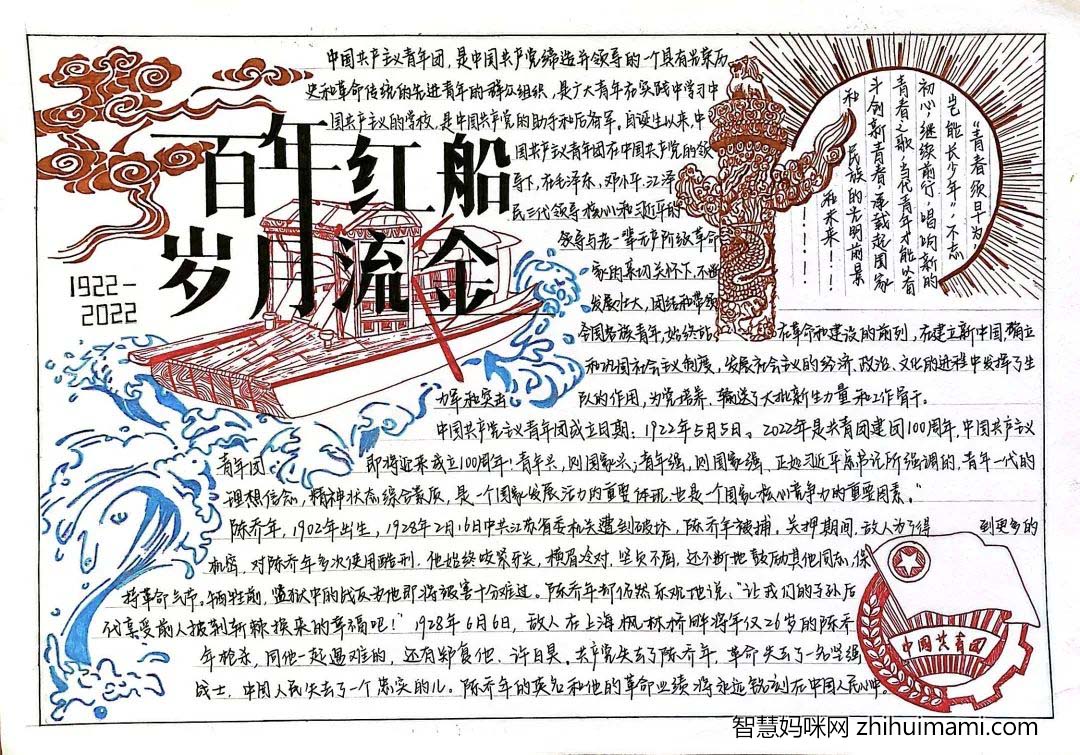 百年红船
岁月流金
1922-
2022
中国共产主义青年团，是中国共产党缔造并领导的一个具有光荣历
史和革命传统的先进青年的群众组织，是广大青年在实践中学习中
国共产主义的学校，是中国共产党的助手和后备军。自诞生以来，中
国共产主义青年团在中国共产党的领
导下，在毛泽东，邓小平，江泽
民三代领导核心和习近平的
领导与老一辈无产阶级革命
家的亲切关怀下，不断
发展壮大，团结和带领
全国各族青年，始终站 在革命和建设的前列，在建立新中国，确立
和巩固社会主义制度，发展社会主义的经济、政治、文化的进程中发挥了生
力军和突击 队的作用，为党培养、输送了大批新生力量和工作骨干。
中国共产党主义青年团成立日期：1922年5月5日。2022年是共青团建团100周年，中国共产主义
青年团 即将迎来成立100周年！青年兴，则国家兴；青年强，则国家强、正如习近平总书记所强调的，青年一代的
理想信念，精神状态综合素质，是一个国家发展活力的重要体现，也是一个国家核心竞争力的重要因素。"
陈乔年，1902年出生，1928年2月16日中共江苏省委机关遭到破坏，陈乔年被捕。关押期间，敌人为了得 到更多的
机密，对陈乔年多次使用酷刑，他始终咬紧牙关，横眉冷对，坚贞不屈，还不断地鼓励其他同志，保
持革命气节。牺牲前，监狱中的战友为他即将被害十分难过。陈乔年却仍然乐观地说："让我们的子孙后
代享受前人披荆斩棘换来的幸福吧！"1928年6月6日，敌人在上海枫林桥畔将年仅26岁的陈乔
年枪杀，同他一起遇难的，还有郑复他、许白昊。共产党失去了陈乔年，革命失去了一名坚强
战士，中国人民失去了一个忠实的儿。陈乔年的英名和他的革命业绩将永远铭刻在中国人民心中。
"青春须早为，
岂能长少年"，不忘
初心，继续前行，唱响新的
青春之歌，当代青年才能以奋
斗创新青春，承载起国家
和民族的光明前景
和未来！！
！！！！
中国共青团
智慧妈咪网 zhihuimami.com